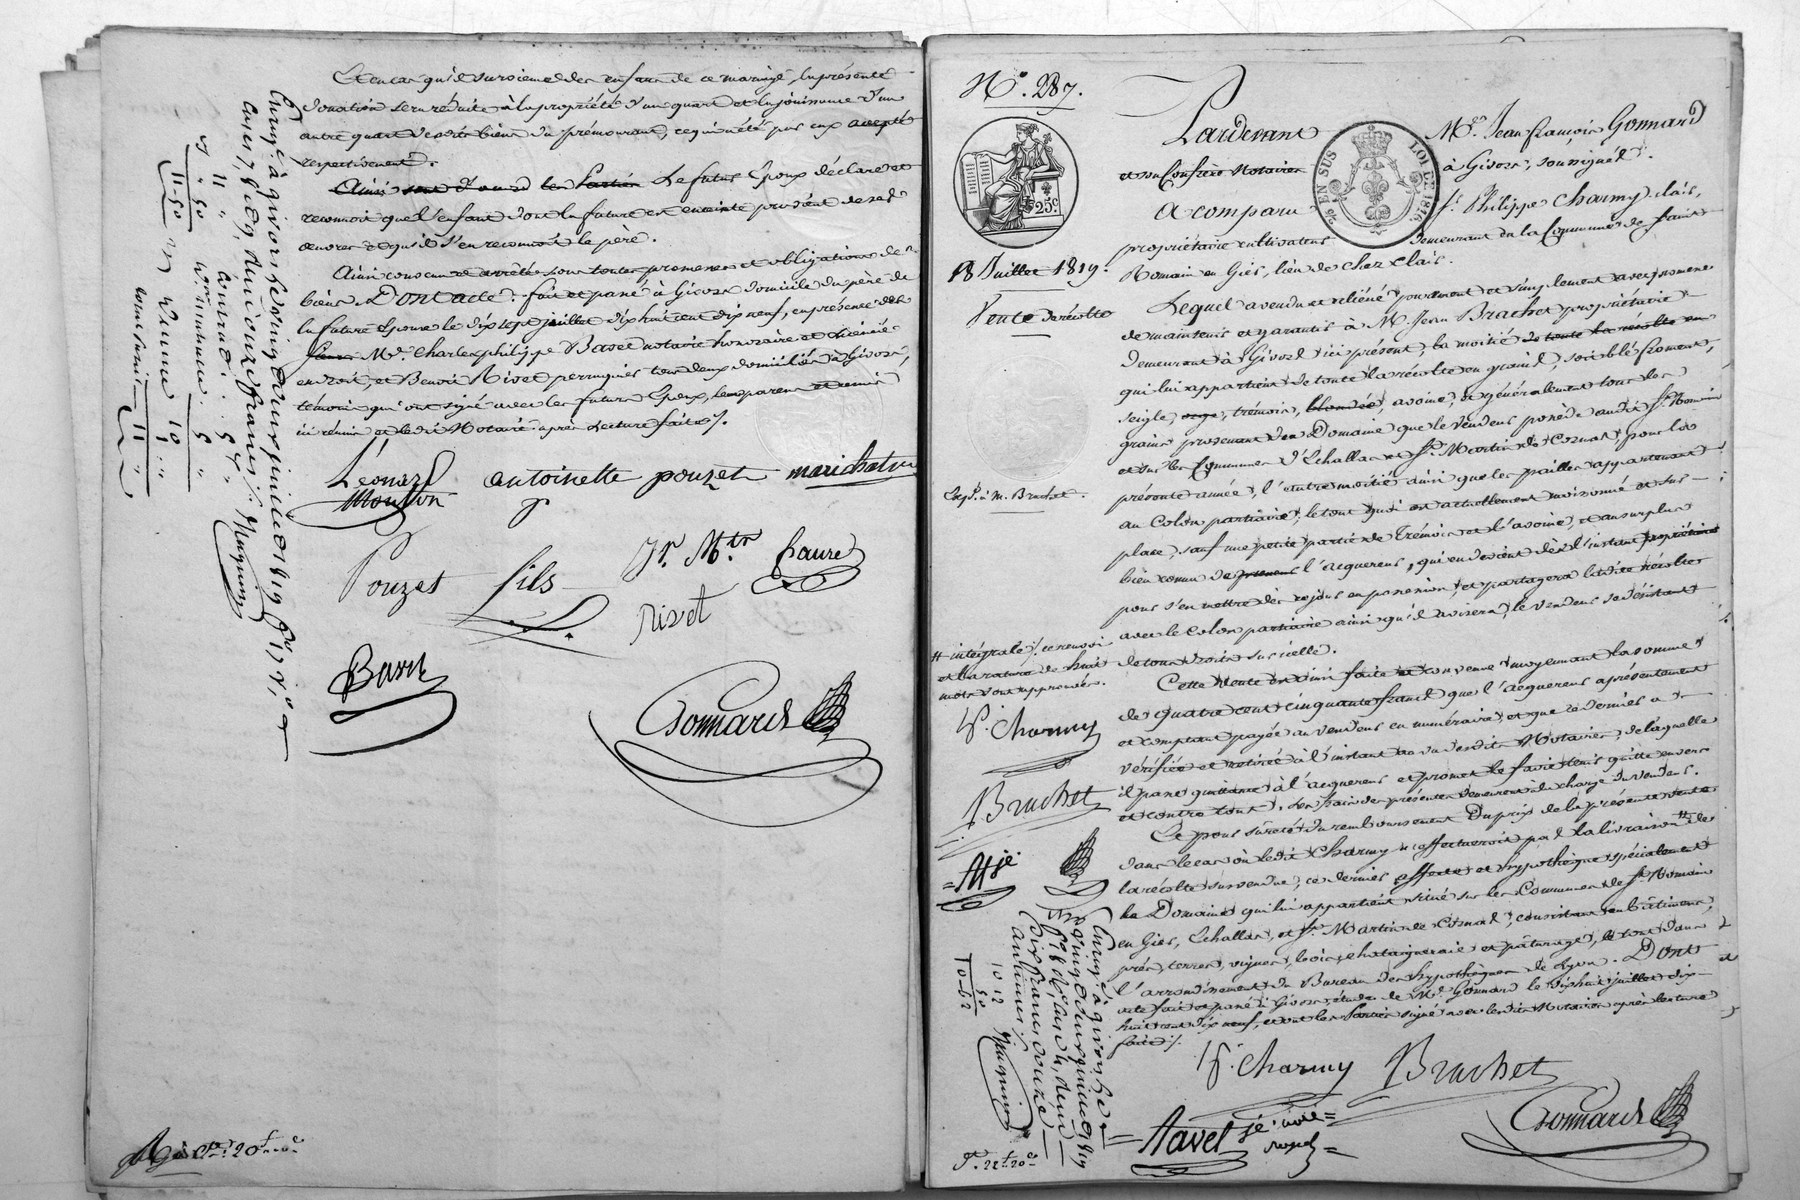 Et en cas qu'il survienne des enfans de ce mariage, la présente
donation sera réduite à la propriété d'un quart et la jouissance d'un
autre quart desdits biens du prémourant, ce qui a été par eux accepté
respectivement.
Ainsi Le futur Epoux déclare et
reconnoit que l'enfant dont la future est enceinte provient de ses
œuvres et qu'il s'en reconnoit le père.
Ainsi convenu et arrêté sous toutes promesses et obligations de
biens. Dont acte. fait et passé à Givors domicile du père de
la future Epouse le dix sept juillet dix huit cent dix neuf, en présence de
Mr. Charles philippe Bavet notaire honoraire et licencié
en droit, et Benoit Rivet perruquier tous deux domiciliés à Givors,
témoins qui ont signé avec les futurs Epoux, les parens
et ledit Notaire après lecture faite /.
Léonard Mouton
antoinette pouzet
Pouzet fils
faure
Rivet
Bavet
Gonnard
Enregé à givors le vingt deux juillet 1819 fo 17
cases 7, 8 et 9, dix francs
11 "
" 50
11 - 50
N°. 287.
25c
EN SUS
LOI DE 1816.
18 Juillet 1819.
Vente de récolte
Expon. à M. Brachet.
Pardevant Me. Jean françois Gonnard
et son Confrère Notaires à Givors, soussignés.
A comparu Sr. Philippe Charmy clais,
propriétaire cultivateur demeurant en la Commune de saint
Romain en Gier, lieu de chez clais.
Lequel a vendu et relâché purement et simplement avec promesse
de maintenir et garantir à M. Jean Brachet propriétaire
demeurant à Givors ici présent, la moitié de toute la récolte en
qui lui appartient de toute la récolte en grains, soit blé froment,
seigle, orge, trémois, avoine, et généralement tous les
grains provenant des Domaines que le vendeur possède audit St. Romain
et sur les Communes d'Echallas et St. Martin de Cornas, pour la
présente année, l'autre moitié ainsi que les pailles appartenant
au Colon partiaire; le tout qui est actuellement moissonné et sur
place, sauf une petite partie de Trémois et l'avoine, et au surplus
bien connu de l'acquereur, qui en devient dès l'instant propriétaire
pour s'en mettre dès ce jour en possession et partagera ladite récolte
avec le Colon partiaire ainsi qu'il avisera, le vendeur se désistant
de tous droits sur icelle.
# intégrale /. ce renvoi
et la rature de huit
mots sont approuvés.
Cette Vente est ainsi faite et convenue moyennant la somme
de quatre cent cinquante francs que l'acquereur a présentement
et comptant payée au vendeur en numéraire, et que ce dernier a
vérifiée et retirée à l'instant au vu desdits Notaires, de laquelle
il passe quittance à l'acquereur et promet le faire tenir quitte envers
et contre tous. Les frais des présentes demeurent à la charge du vendeur.
Et pour sûreté du remboursement du prix de la présente vente
dans le cas où ledit Charmy n'effectueroit pas la livraison # de
la récolte sus vendue, ce dernier affecte et hypothèque spécialement
les Domaines qui lui appartient situé sur les Communes de St. Romain
en Gier, Echallas, et St. Martin de Cornas, consistant en bâtimens,
prés, terres, vignes, bois, chataigneraie et pâturage, le tout dans
l'arrondissement du Bureau des hypothèques de Lyon. Dont
acte fait et passé à Givors étude de Me. Gonnard le dix huit juillet dix
huit cent dix neuf, et ont les Parties signé avec lesdits Notaires après lecture
faite /.
P. Charmy
Brachet
Enregé à givors le
vingt deux juillet 1819
dix francs
10 12
50
10 - 62
P. Charmy Brachet
Gonnard